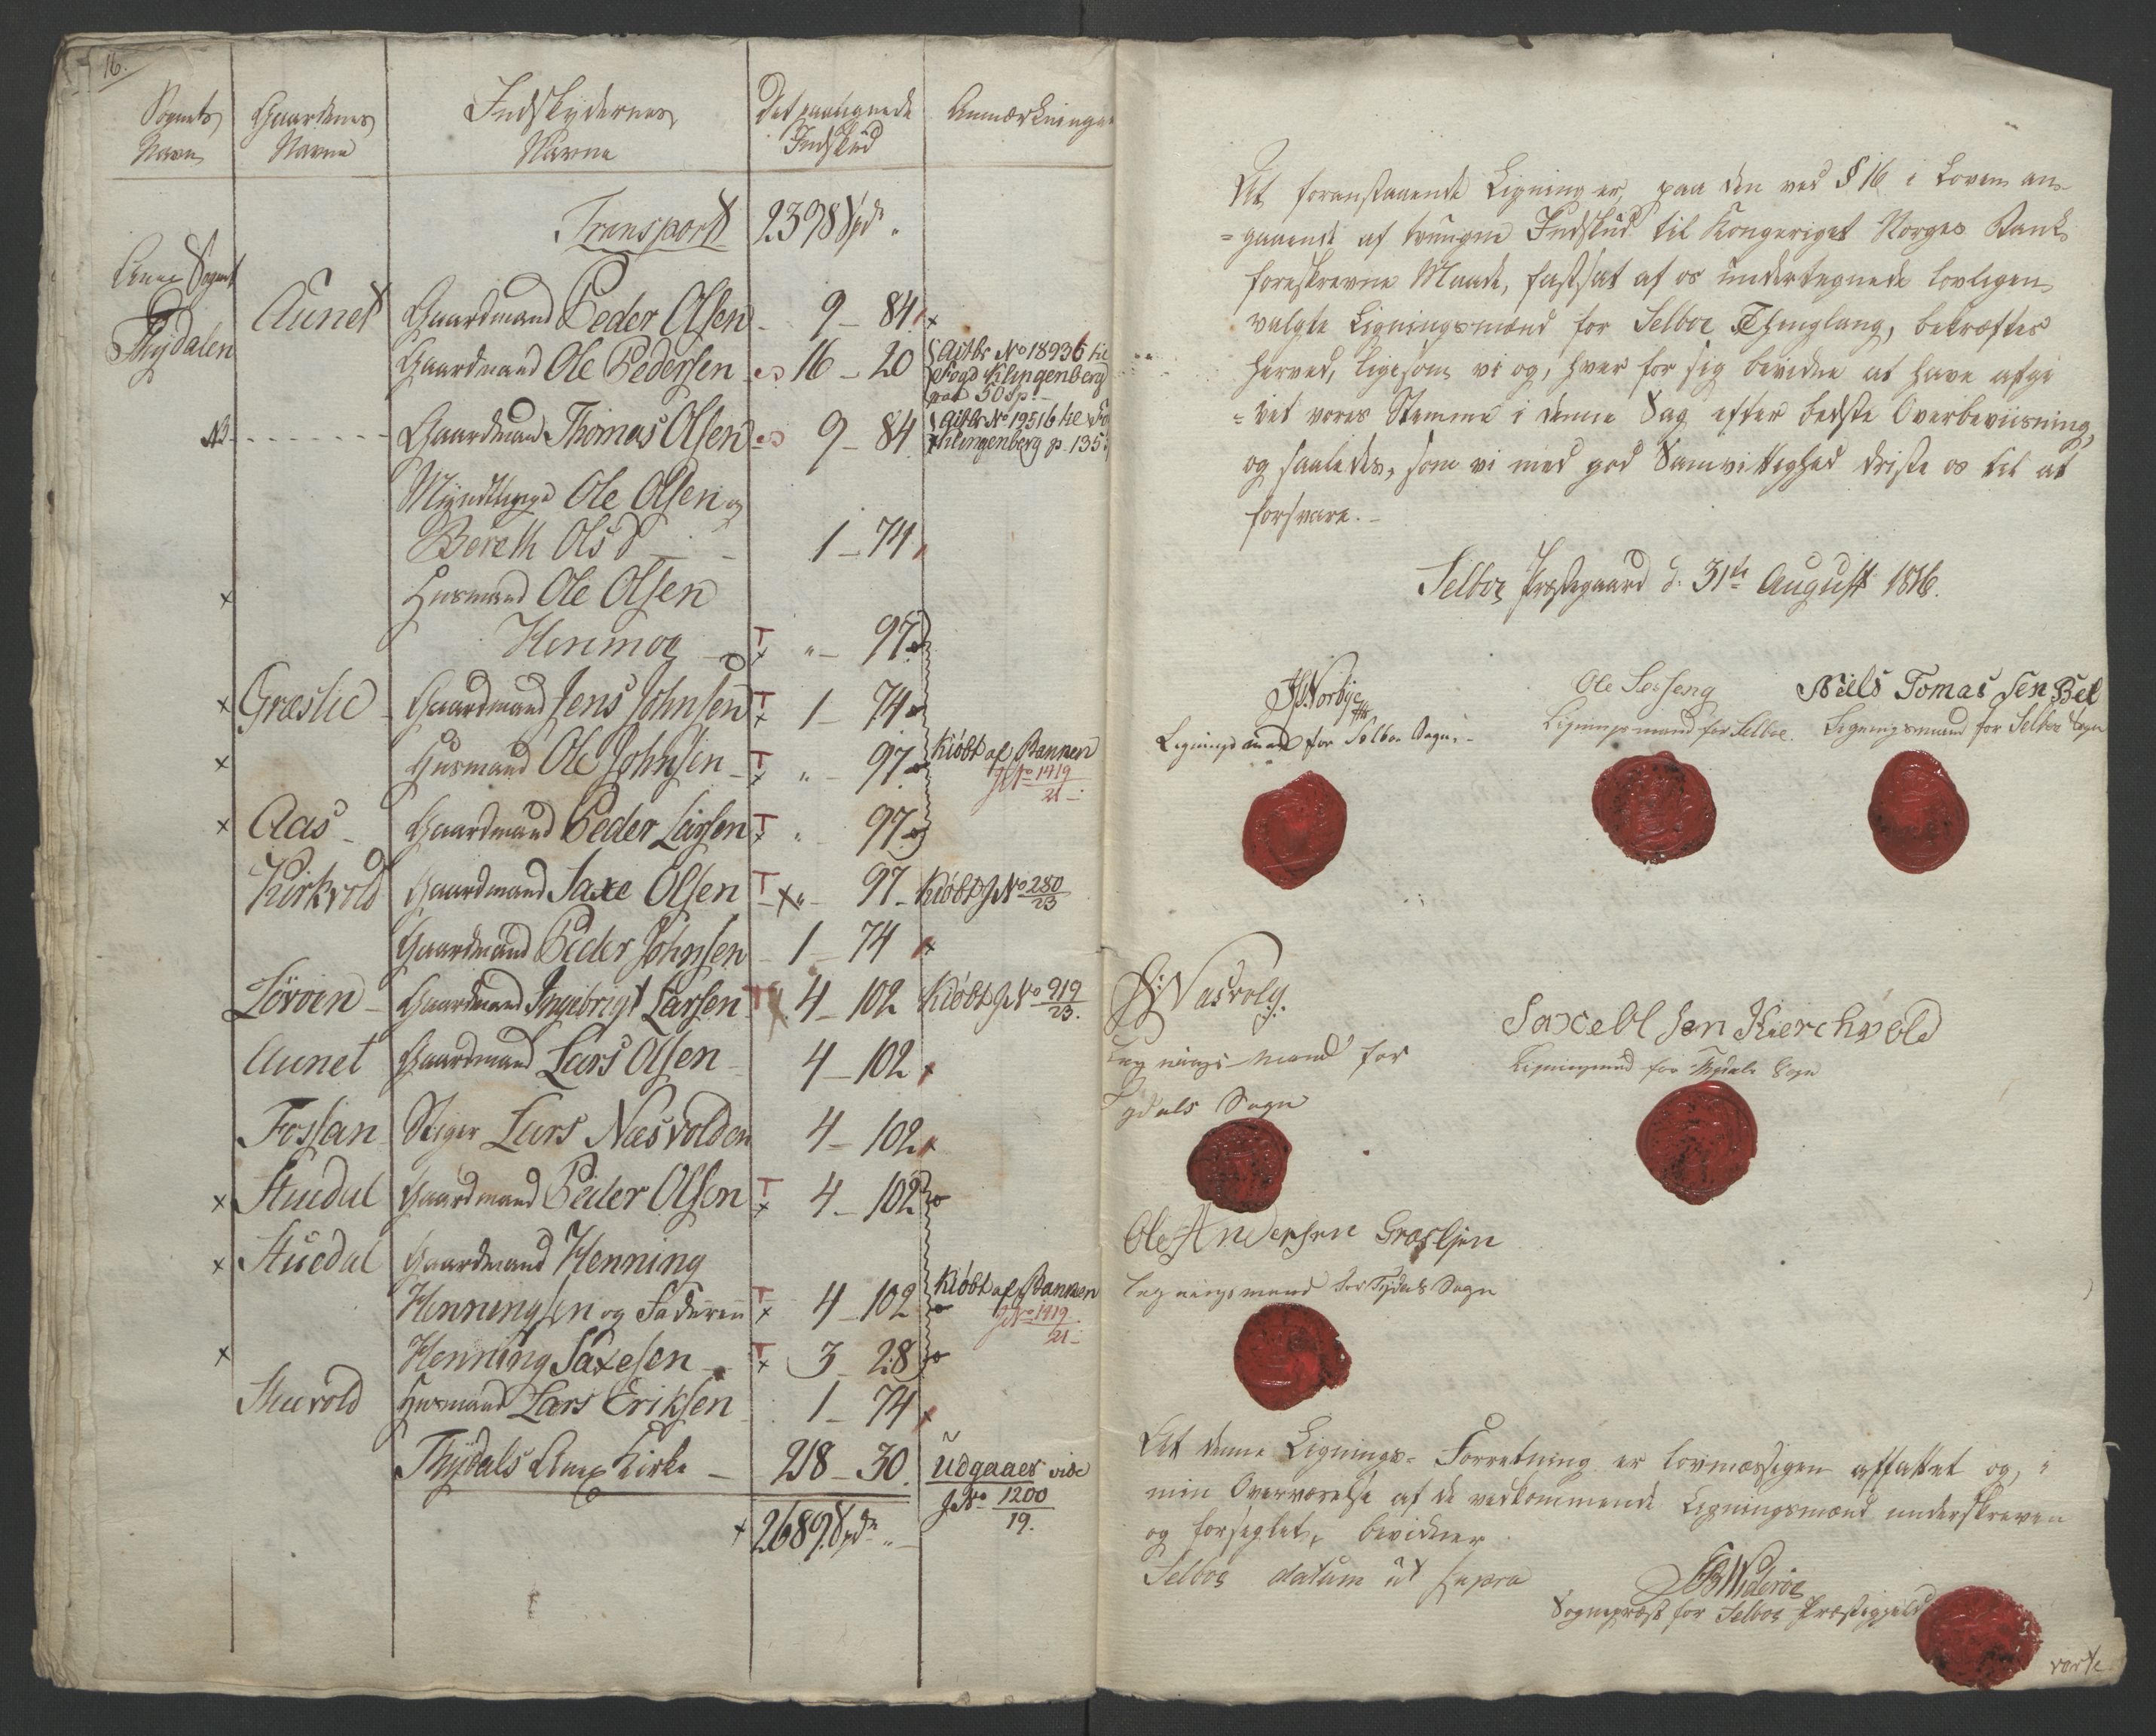 16.
Sognets Navn | Gaardenes Navne | Indskydernes Navne | Det paalignede Indskud | Anmærkninger
Transport 2398 Spd "
Annex Sognet
Thydalen
Aunet Gaardmand Peder Olsen - 9 - 84 x
Gaardmand Ole Pedersen - 16 - 20 Attbr No 18936 til Fogd Klingenberg paa 50 Sp.
NB - - - - - - Gaardmand Thomas Olsen - 9 - 84 Attbr No 19516 til Fo Klingenberg p. 135
Myndtlinge Ole Olsen og
Bereth Olsd - 1 - 74
x Huusmand Ole Olsen
Henmoe T x " - 97
x Græslie Gaardmand Jens Johnsen T x 1 - 74
x Huusmand Ole Johnsen - T x " - 97 Kiöbt af Banken
J No 1419/21
x Aas - Gaardmand Peder Larsen T x " 97
Kirkvold Gaardmand Saxe Olsen T x " - 97 - Kiöbt J No 280/23
Gaardmand Peder Johnsen - 1 - 74 x
Löwen - Gaardmand Ingebrigt Larsen T 4 - 102 Kiöbt J No 919/23.
Aunet Gaardmand Lars Olsen - 4 - 102 x
Fossan Stiger Lars Næsvolden 4 - 102
x Stuedal Gaardmand Peder Olsen T x 4 - 102
x Stuedal Gaardmand Henning
Henningsen og Faderen T x 4 - 102 Kiöbt af Banken
J No 1419/21
x Henning Saxesen - T x 3 - 28
Stuevold Huusmand Lars Eriksen 1 - 74 x
Thydals Annex Kirke - 218 - 30. Udgaaer vide
J No 1200/19.
x 2689 Spd "
At foranstaaende Ligning er, paa den ved § 16 i Loven an-
=gaaende af tvungne Indskud til Kongeriget Norges Bank
foreskrevne Maade, fastsat af os undertegnede lovligen
valgte Ligningsmænd for Selboe Thinglaug, bekræftes
herved, ligesom vi og, hver for sig bevidne at have afgi
=vet vores Stemme i denne Sag efter bedste Overbeviisning,
og saaledes, som vi med god Samvittighed driste os til at
forsvare. -
Selboe Præstegaard d. 31te August 1816.
Norbye
Ligningsmand for Selboe Sogn -
Ole Selseng
Ligningsmand for Selboe.
Niels Tomas sen Bel
Ligningsmand for Selboe Sogn
Nasvold.
Ligningsmand for
Tydals Sogn
Saxe Ol sen Kierchvold
Ligningsmand for Thydals Sogn
Ole Andersen Græsljen
Ligningsmand for Tydals Sogn
At denne Lignings-Forretning er lovmæssigen affattet og, i
min Overværelse af de vedkommende Ligningsmænd underskreven
og forseglet, bevidner
Selboe datum ut supra
Widerøe
Sognepræst for Selboe Præstegjeld